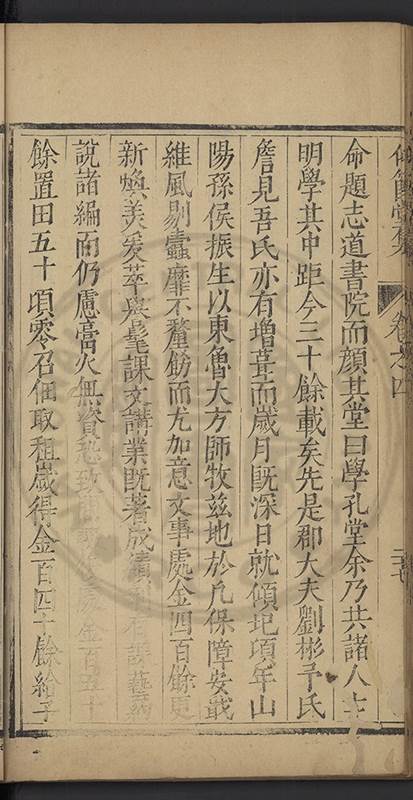 節堂集 卷之四
命題志道書院而顏其堂曰學孔堂余乃共諸人士
明學其中距今三十餘載矣先是郡大夫劉彬予氏
詹見吾氏亦有增葺而歲月既深日就傾圮項年山
陽孫侯振生以東魯大方師牧茲地於凡保障安戢
維風剔蠹靡不釐飭而尤加意文事處金四百餘更
新煥美爰萃與髦課文講業既著成
說諸編而仍慮膏火無資 百五十
餘置田五十頃零召佃取租歲得金一百四十餘給予